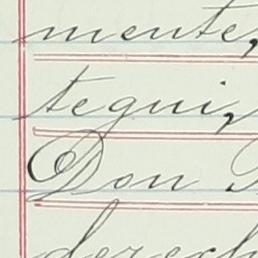 mente,
tegui,
Don
derech